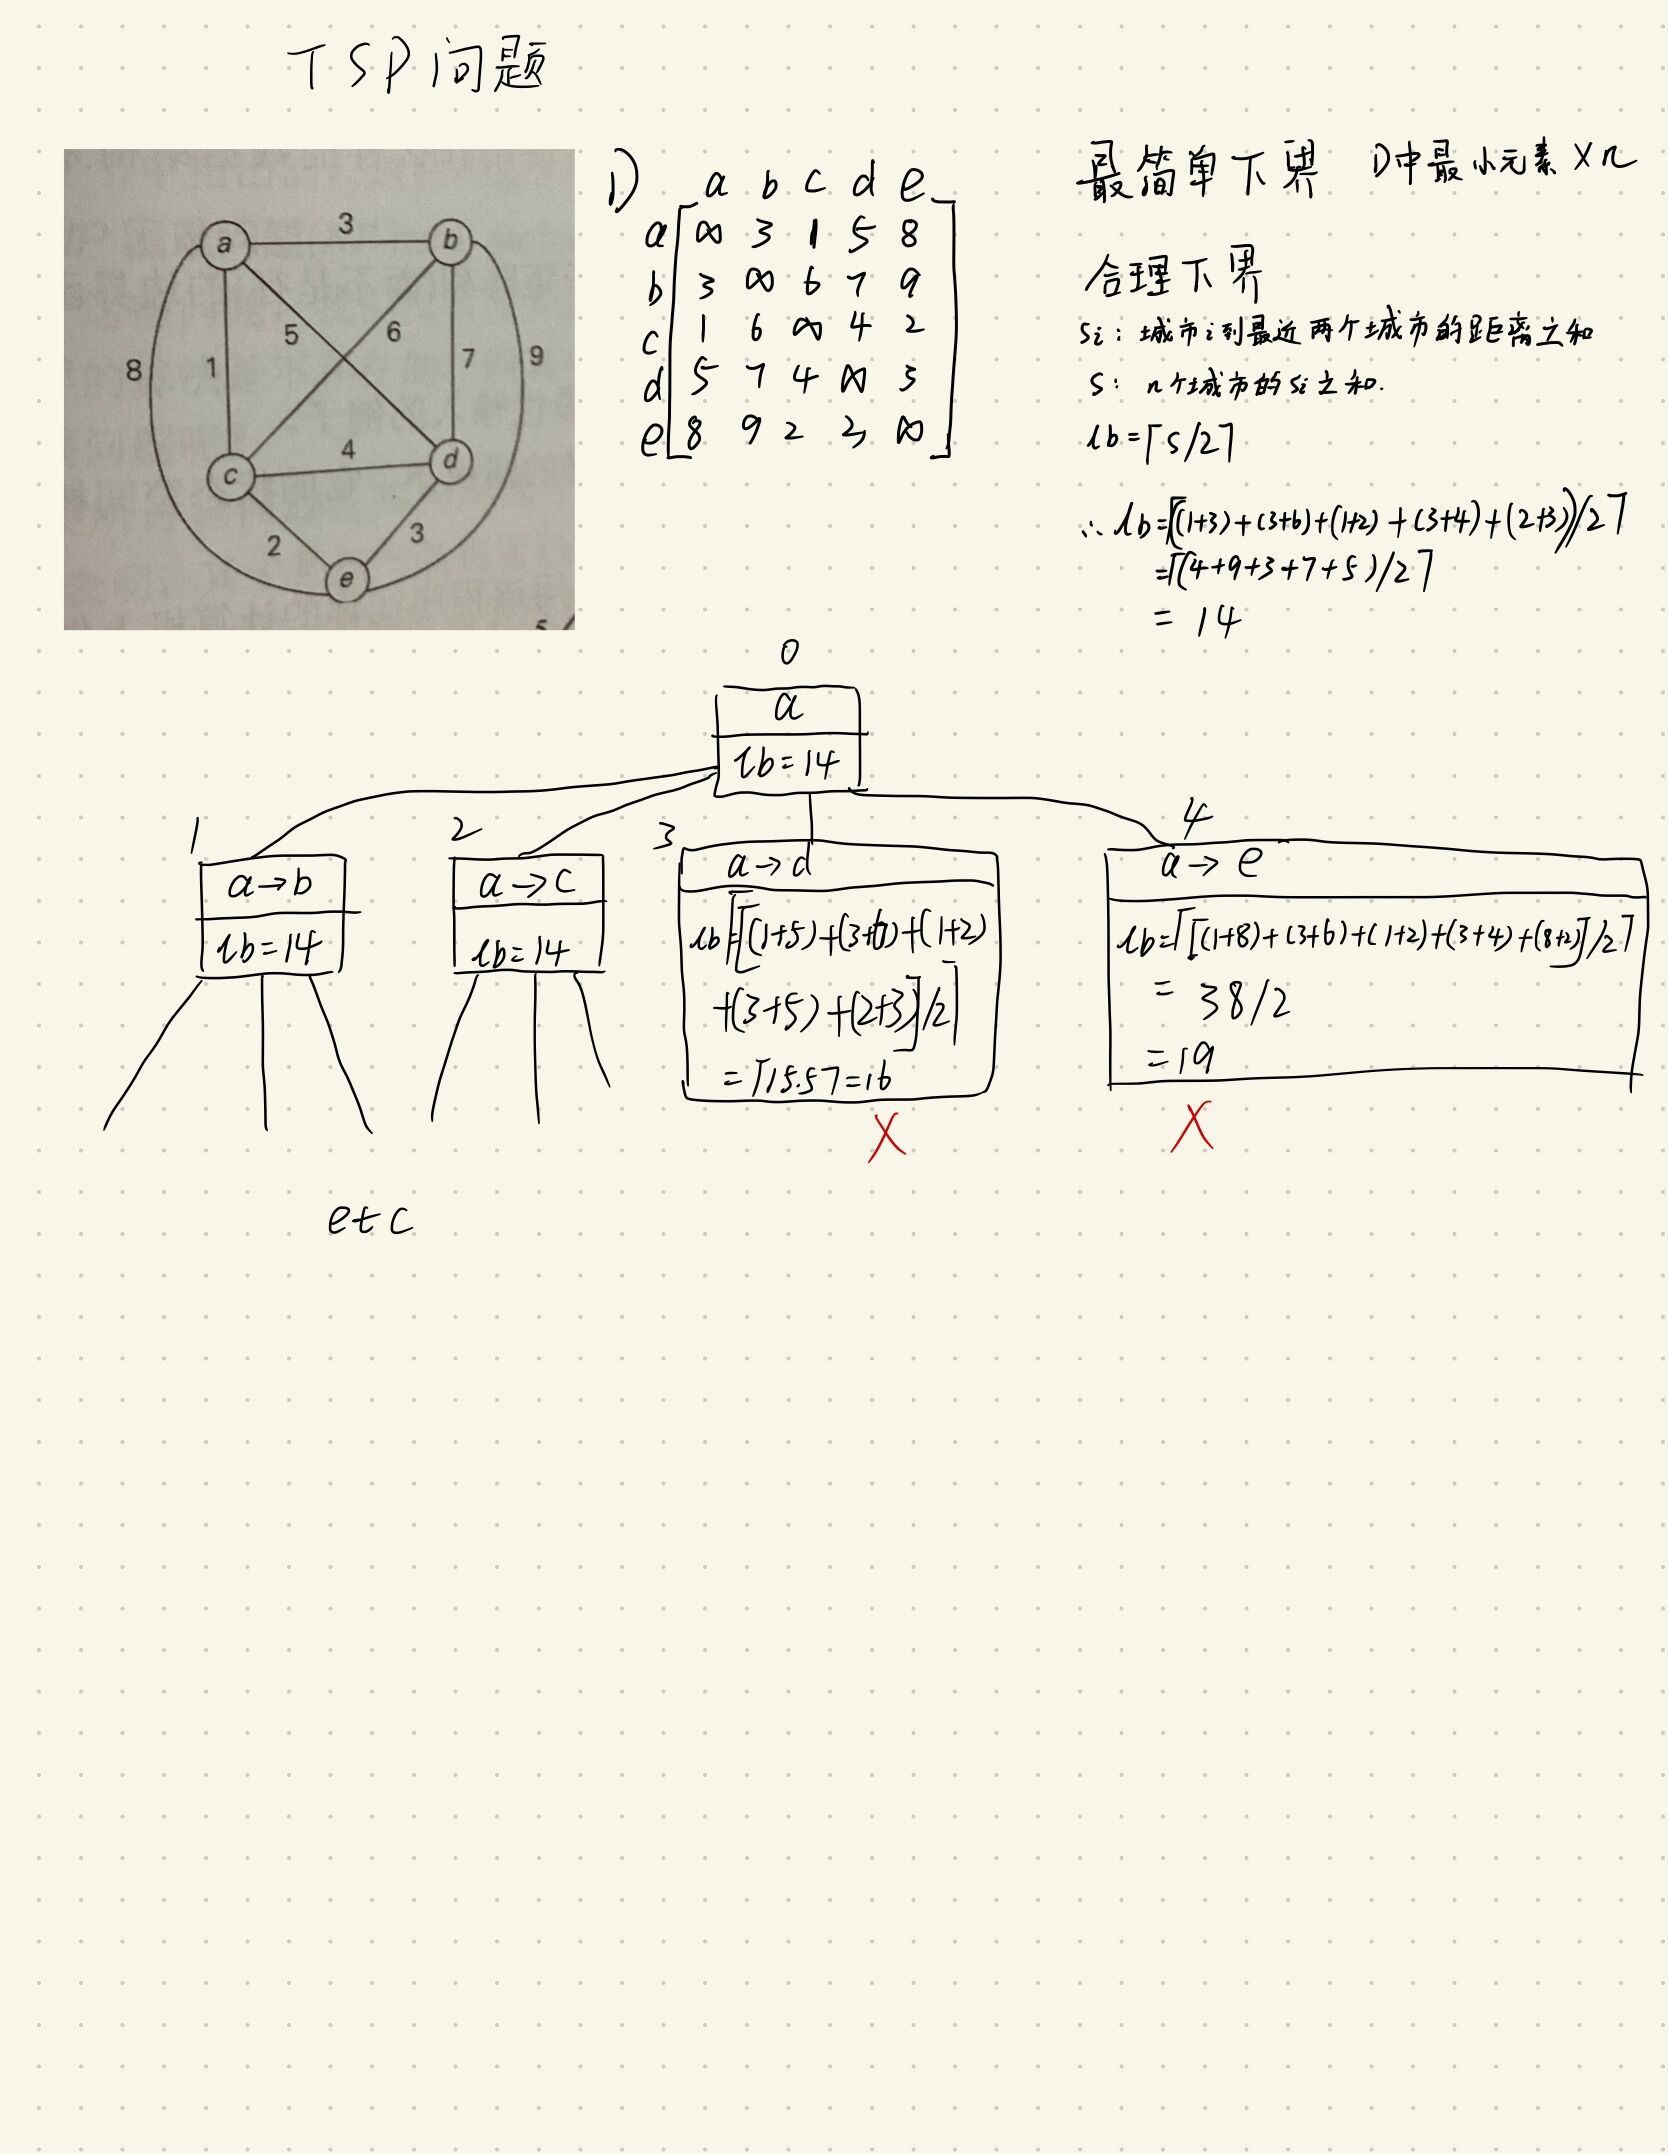 TSP问题
a
b
c
d
e
3
5
6
1
7
8
9
4
2
3
1)
a b c d e
a ∞ 3 1 5 8
b 3 ∞ 6 7 9
c 1 6 ∞ 4 2
d 5 7 4 ∞ 3
e 8 9 2 3 ∞
最简单下界 D中最小元素×n
合理下界
si: 城市i到最近两个城市的距离之和
s: n个城市的si之和.
lb=⌈s/2⌉
∴ lb=⌈((1+3)+(3+6)+(1+2)+(3+4)+(2+3))/2⌉
=⌈(4+9+3+7+5)/2⌉
= 14
0
a
lb=14
1
a→b
lb=14
2
a→c
lb=14
3
a→d
lb=⌈[(1+5)+(3+6)+(1+2)
+(3+5)+(2+3)]/2⌉
=⌈15.5⌉=16
X
4
a→e
lb=⌈[(1+8)+(3+6)+(1+2)+(3+4)+(8+2)]/2⌉
= 38/2
=19
X
etc